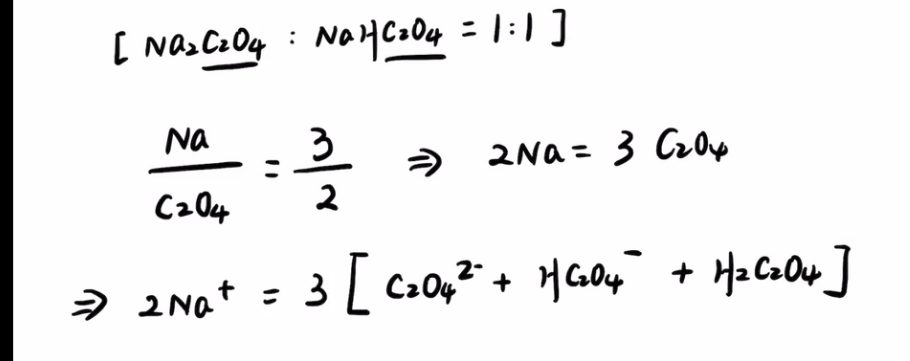 [ Na₂C₂O₄ : NaHC₂O₄ = 1:1 ]
Na/C₂O₄ = 3/2 ⇒ 2Na = 3 C₂O₄
⇒ 2Na⁺ = 3 [ C₂O₄²⁻ + HC₂O₄⁻ + H₂C₂O₄ ]